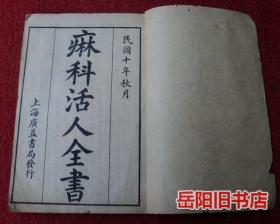 民國十年秋月
痳科活人全書
上海廣益書局發行
岳阳旧书店